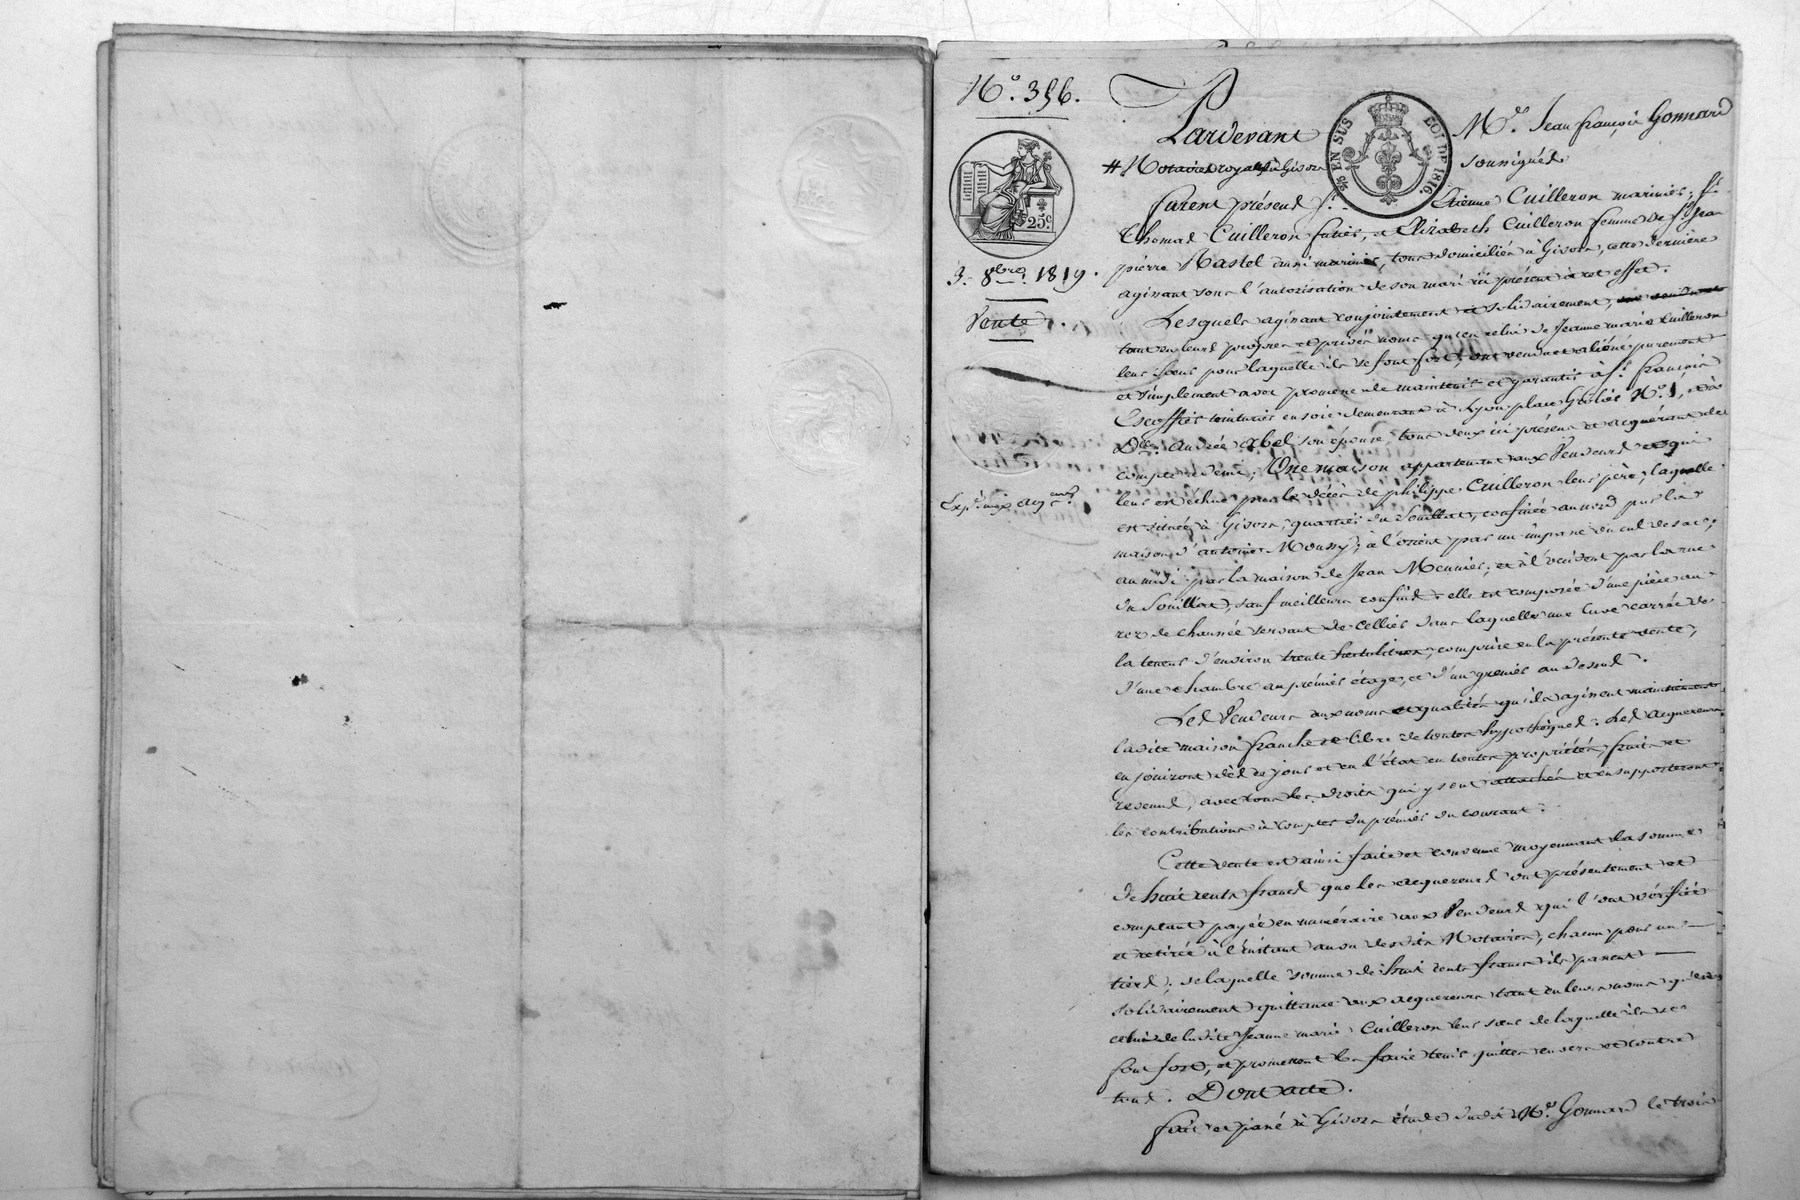 N.º 356.
Pardevant Me. Jean françois Gonnard
# Notaires royaux à Givors soussignés
EN SUS LOI DE 1816.
25c.
3. 8bre. 1819.
Vente.
furent présens sr. Etienne Cuilleron marinier, sr.
Thomas Cuilleron fustier, et Elizabeth Cuilleron femme de sr. Jean
pierre Rastel aussi marinier, tous domiciliés à Givors, cette dernière
agissant sous l'autorisation de son mari ici présent à cet effet.
Lesquels agissant conjointement et solidairement,
tant en leurs propres et privés noms qu'en celui de Jeanne marie Cuilleron
leur sœur pour laquelle ils se font fort, ont vendu et aliéné purement
et simplement avec promesse de maintenir et garantir à sr. françois
Escoffier teinturier en soie demeurant à Lyon place N.º 1, et à
Dlle. Andrée Abel son épouse, tous deux ici présens et acquérant de
compte à demi; Une maison appartenant aux Vendeurs et qui
leur est échue par le décès de philippe Cuilleron leur père; laquelle
est située à Givors, quartier du Souillat, confinée au nord par la
maison d'antoine Moussy; à l'orient par un impasse ou cul de sac;
au midi par la maison de Jean Meunier; et à l'occident par la rue
du Souillat, sauf meilleurs confins. elle est composée d'une pièce au
rez de chaussée servant de cellier dans laquelle une cuve carrée de
la teneur d'environ trente hectolitres, comprise en la présente vente;
d'une chambre au prémier étage, et d'un grenier au dessus.
Les Vendeurs aux noms et qualités qu'ils agissent
ladite maison franche et libre de toutes hypothèques. Les acquereurs
en jouiront dès ce jour et en l'état en toutes propriétés, fruits et
revenus, avec tous les droits qui y sont attachés et en supporteront
les contributions à compter du prémier du courant.
Cette vente est ainsi faite et convenue moyennant la somme
de huit cents francs que les acquereurs ont présentement et
comptant payée en numéraire aux Vendeurs qui l'ont vérifiée
et retirée à l'instant au vu desdits Notaires, chacun pour un
tiers; de laquelle somme de huit cents francs ils passent
solidairement quittance aux acquereurs tant en leurs noms qu'en
celui de ladite Jeanne marie Cuilleron leur sœur de laquelle ils se
font fort, et promettent les faire tenir quittes envers et contre
tous. Dont acte.
fait et passé à Givors étude dudit Me. Gonnard le trois